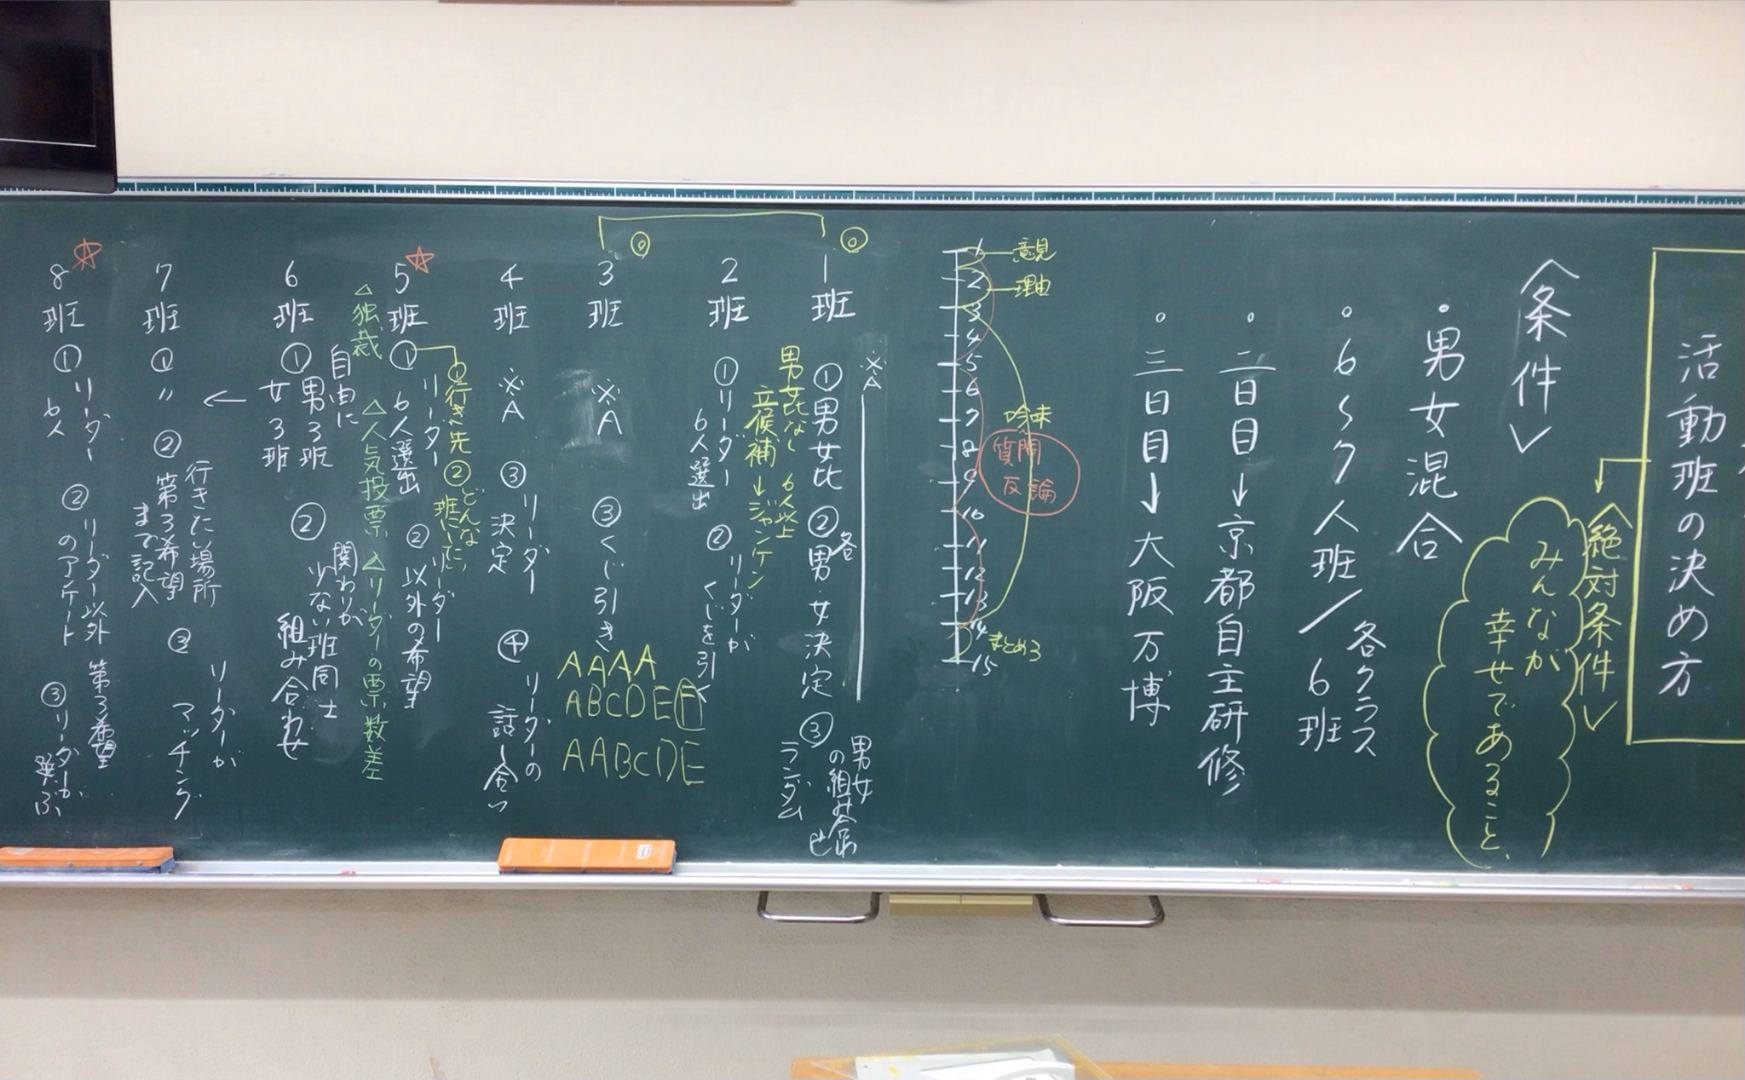 活動班の決め方
〈絶対条件〉
みんなが
幸せであること、
〈条件〉
・男女混合
・6〜7人班/6班
各クラス
・二日目→京都自主研修
・三日目→大阪万博
1
2
3
4
5
6
7
8
9
10
11
12
13
14
15
意見
理由
吟味
質問
反論
まとめ
※A
1班
①男女比 ②男女決定 ③
各
男女
の組み合わせ
ランダム
男女比なし 6人以上
立候補→ジャンケン
2班
①リーダー
6人選出
②リーダーが
くじを引く
3班
※A
③くじ引き
AAAA
ABCDEF
AABCDE
4班
※A
③リーダー
決定
④リーダーの
話し合い
①行き先 ②どんな
班にしたい
5班
①リーダー
6人選出
②リーダー
以外の希望
△独裁 △人気投票 △リーダーの票数差
6班
自由に
①男3班
女3班
②関わりが
少ない班同士
組み合わせ
←
7班
①〃
②行きたい場所
第3希望
まで記入
③リーダーが
マッチング
8班
①リーダー
6人
②リーダー以外 第3希望
のアンケート
③リーダーが
選ぶ